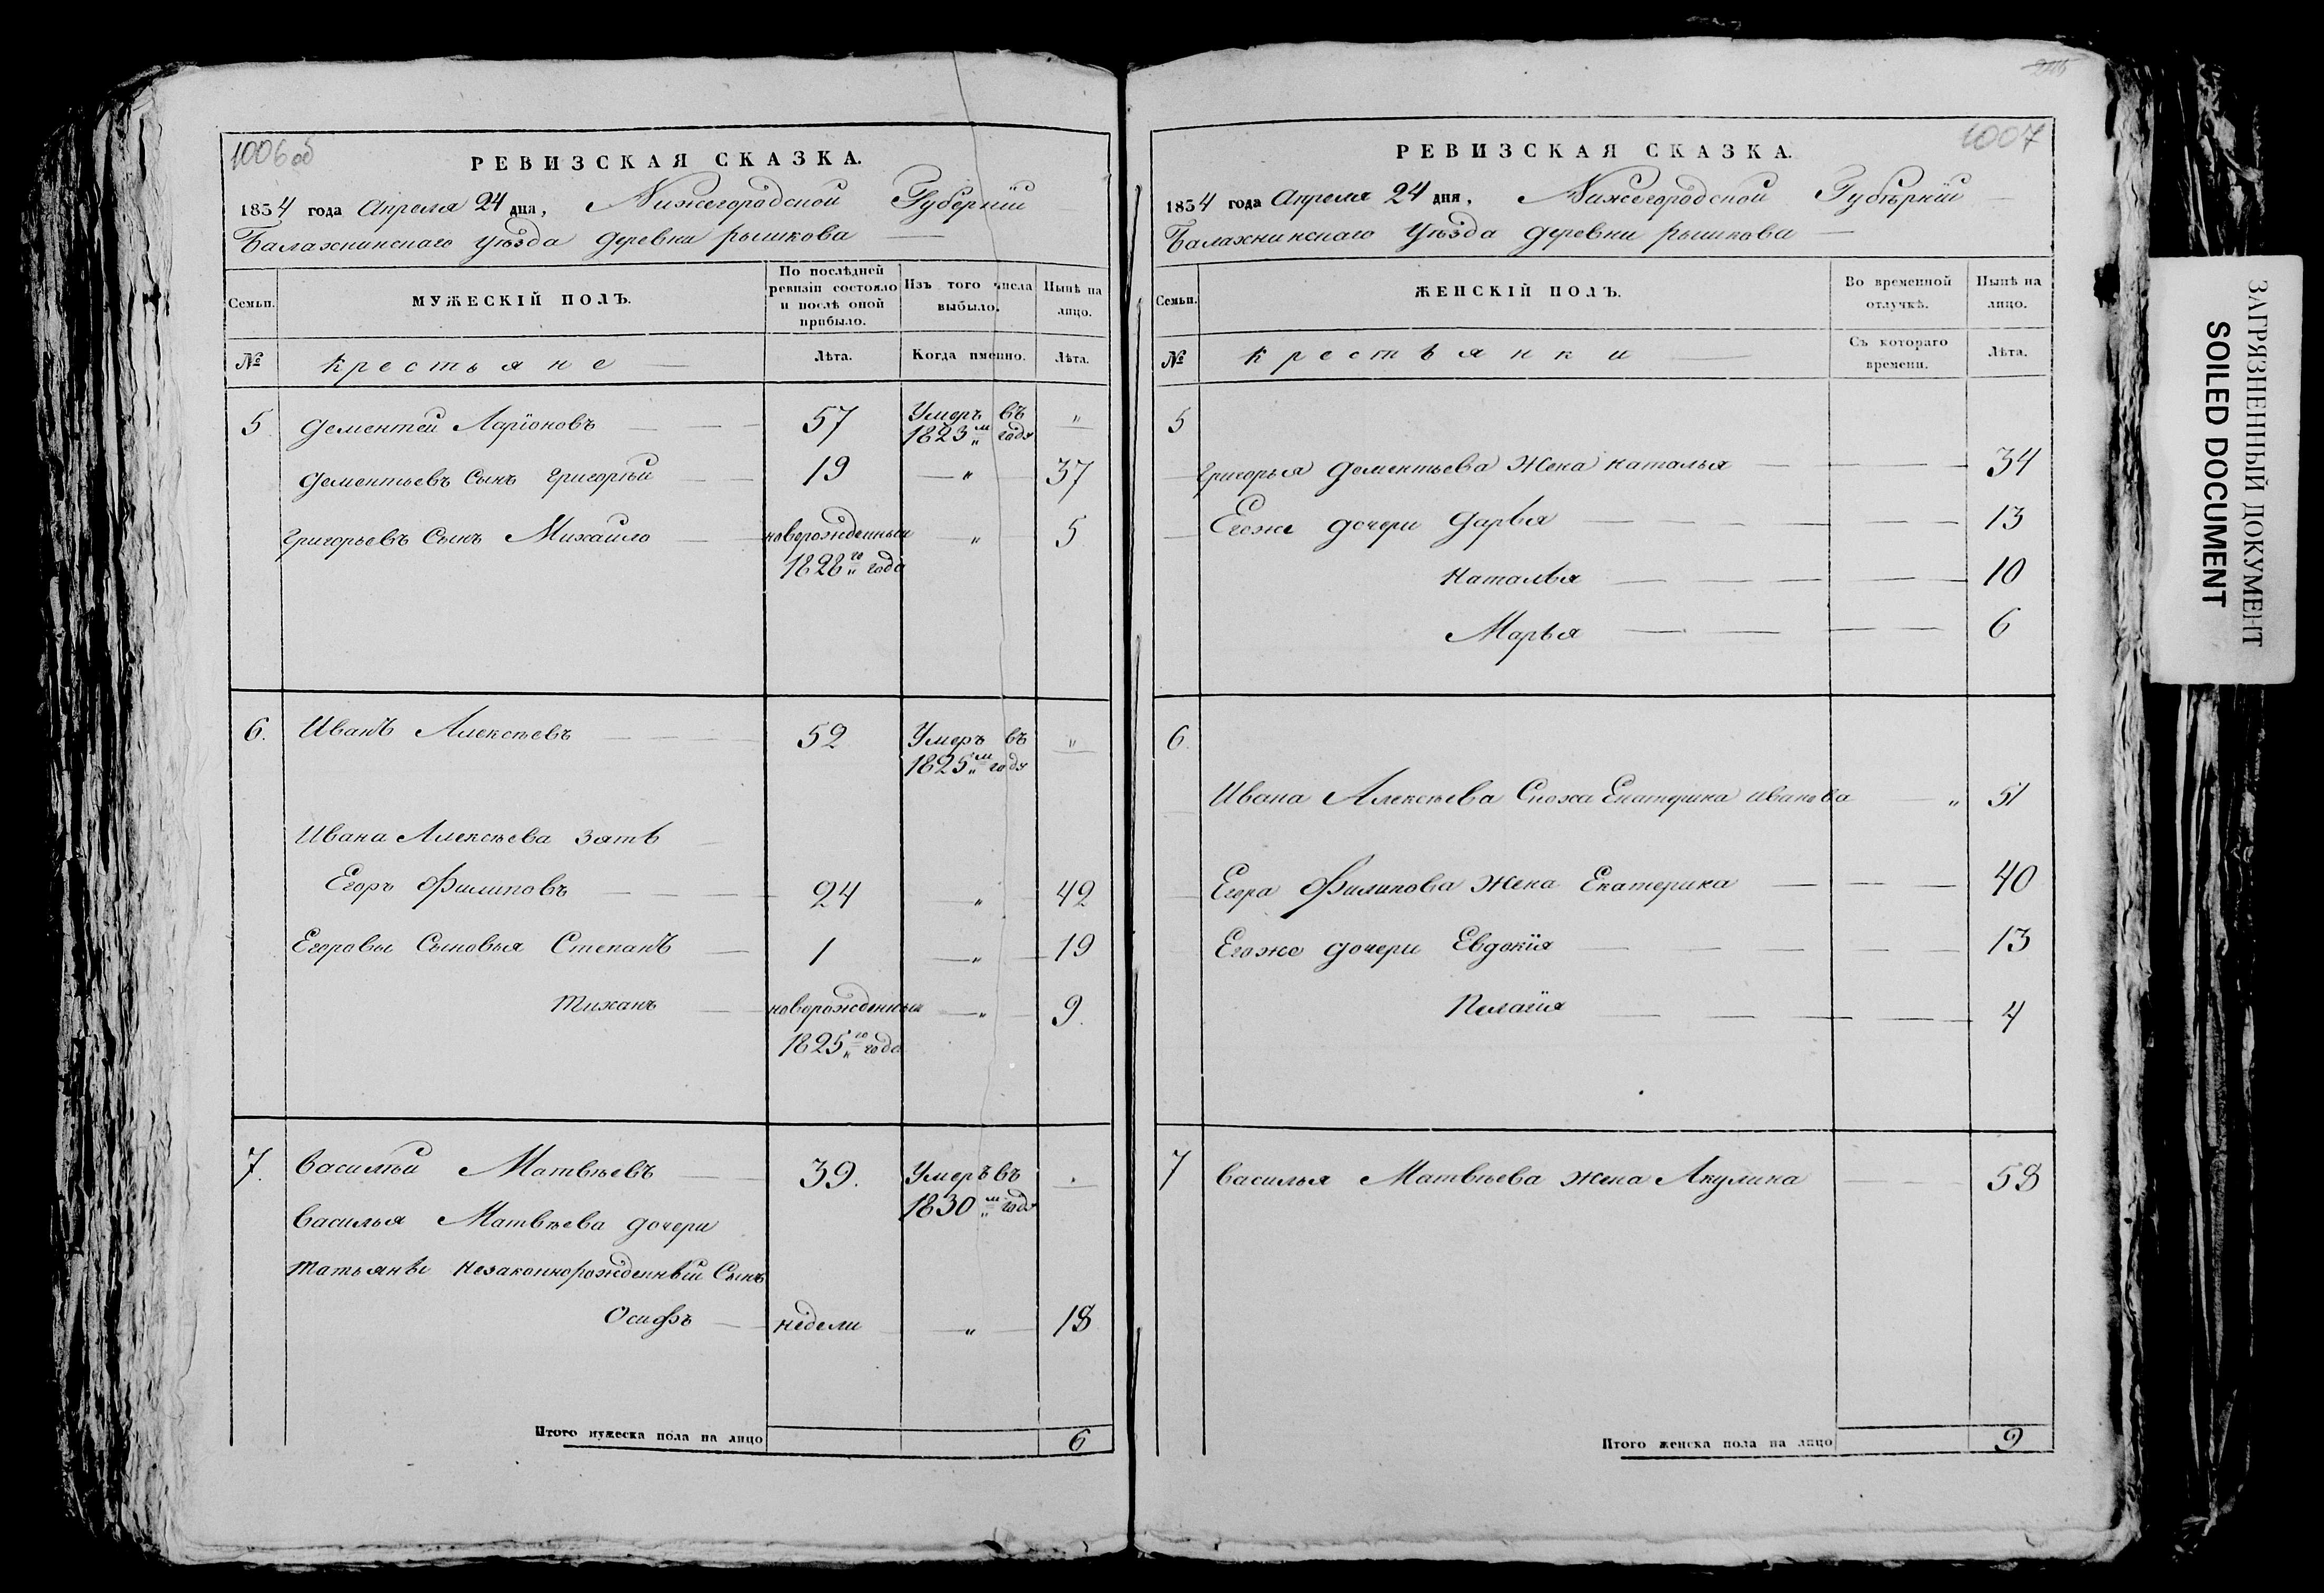 1006 об
РЕВИЗСКАЯ СКАЗКА.
1834 года Апреля 24 дня, Нижегородской Губернїи
Балахнинскаго Уѣзда деревни рышкова
Семьи.
МУЖЕСКІЙ ПОЛЪ.
По послѣдней ревизіи состояло и послѣ оной прибыло.
Изъ того числа выбыло.
Нынѣ на лицо.
№ Крестьяне Лѣта. Когда именно. Лѣта.
5 Дементей Ларїоновъ 57 Умеръ въ 1823м году "
Дементьевъ Сынъ Григорѣй 19 " 37
Григорьевъ Сынъ Михайло новорожденный 1828го года " 5
6. Иванъ Алексѣевъ 52 Умеръ въ 1825м году "
Ивана Алексѣева зять
Егоръ Филиповъ 24 " 42
Егоровы Сыновья Степанъ 1 " 19
Тиханъ новорожденный 1825го года " 9.
7. Василѣй Матвѣевъ 39. Умеръ въ 1830м году
Василья Матвѣева дочери
Татьяны незаконнорожденный Сынъ
Осифъ недели " 18
Итого мужеска пола на лицо 6
1007
РЕВИЗСКАЯ СКАЗКА.
1834 года Апреля 24 дня, Нижегородской Губѣрнїи
Балахнинскаго Уѣзда деревни рышкова
Семьи.
ЖЕНСКІЙ ПОЛЪ.
Во временной отлучкѣ.
Нынѣ на лицо.
№ Крестьянки Съ котораго времени. Лѣта.
5
Григорья Дементьева Жена Наталья 34
Егоже дочери Дарья 13
Наталья 10
Марья 6
6.
Ивана Алексѣева Сноха Екатерина Иванова " 51
Егора Филипова Жена Екатерина 40
Егоже дочери Евдокїя 13
Пелагїя 4
7 Василья Матвѣева жена Акулина 58
Итого женска пола на лицо 9
ЗАГРЯЗНЕННЫЙ ДОКУМЕНТ
SOILED DOCUMENT